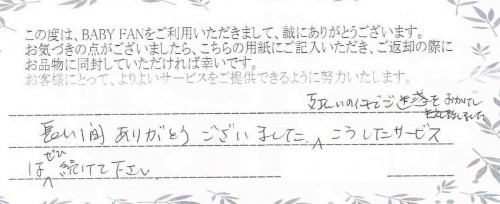 この度は、BABY FANをご利用いただきまして、誠にありがとうございます。
お気づきの点がございましたら、こちらの用紙にご記入いただき、ご返却の際に
お品物に同封していただければ幸いです。
お客様にとって、よりよいサービスをご提供できるように努力いたします。
支払いの件でご迷惑をおかけし
長い間 ありがとう ございました。こうしたサービス
は ぜひ 続けて下さい